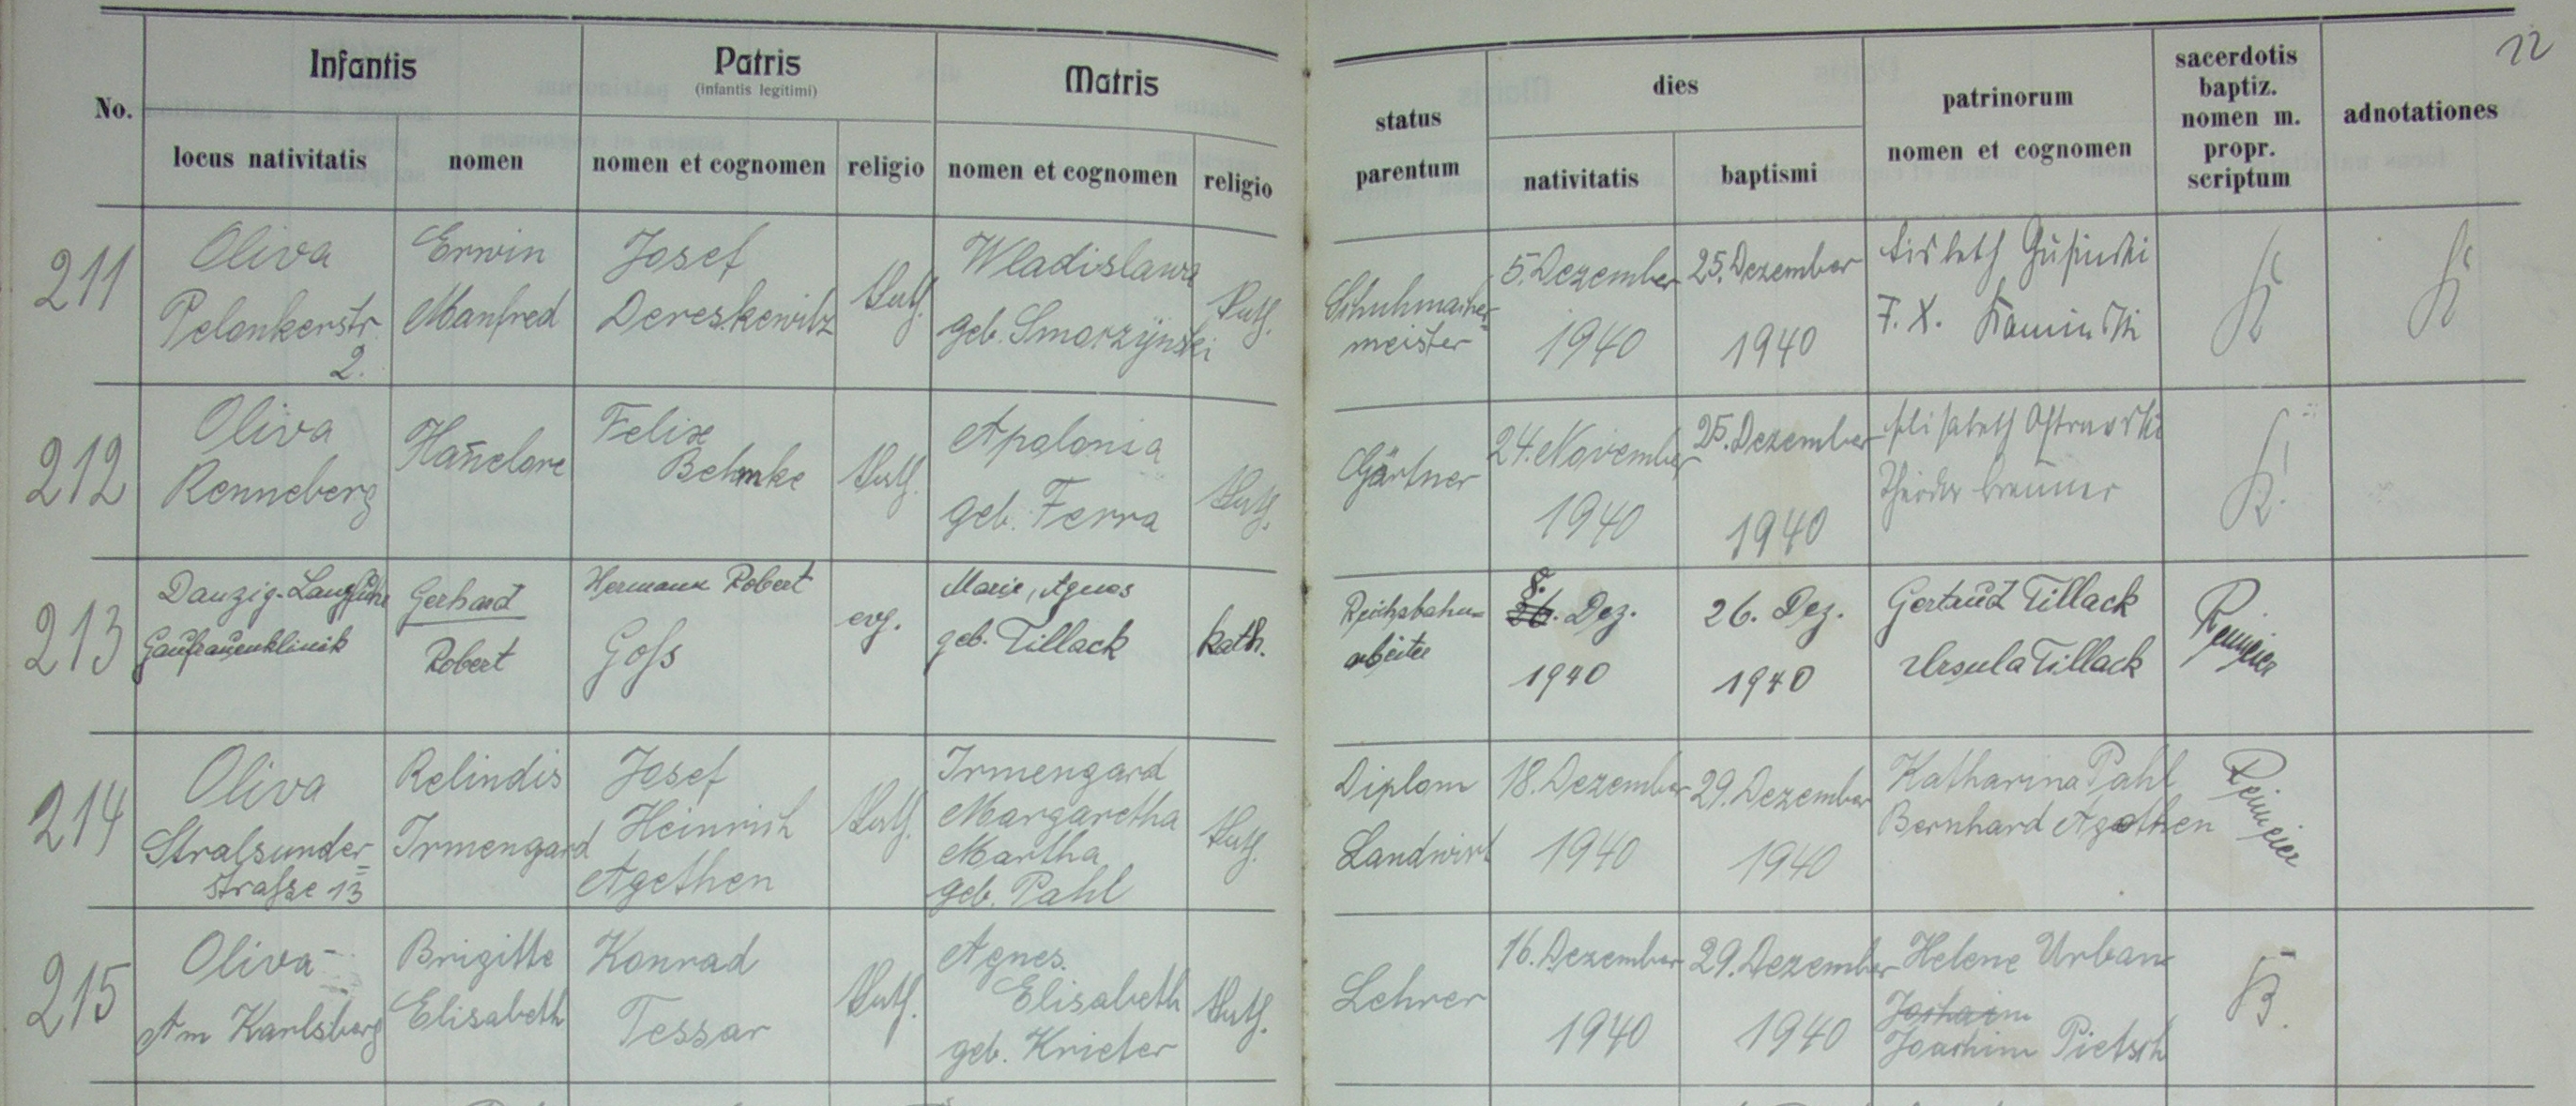 22
No. Infantis Patris (infantis legitimi) Matris status parentum dies patrinorum nomen et cognomen sacerdotis baptiz. nomen m. propr. scriptum adnotationes
locus nativitatis nomen nomen et cognomen religio nomen et cognomen religio nativitatis baptismi
211
Oliva
Pelonkerstr.
2.
Erwin
Manfred
Josef
Dereskewitz
kath.
Wladislawa
geb. Smarzÿnski
kath.
Schuhmacher=
meister
5. Dezember
1940
25. Dezember
1940
F. X. Kaminski
K
K
212
Oliva
Renneberg
Han̄elore
Felix
Behmke
kath.
Apolonia
geb. Ferra
kath.
Gärtner
24. November
1940
25. Dezember
1940
Elisabeth Ostrowski
K!
213
Danzig-Langfuhr
Gaufrauenklinik
Gerhard
Robert
Hermann Robert
Goſs
evg.
Marie, Agnes
geb. Tillack
kath.
Reichsbahn=
arbeiter
8.
26. Dez.
1940
26. Dez.
1940
Gertrud Tillack
Ursula Tillack
214
Oliva
Stralsunder=
straſse 13
Relindis
Irmengard
Josef
Heinrich
Agethen
kath.
Irmengard
Margaretha
Martha
geb. Pahl
kath.
Diplom
Landwirt
18. Dezember
1940
29. Dezember
1940
Katharina Pahl
Bernhard Agethen
215
Oliva-
Am Karlsberg
Brigitte
Elisabeth
Konrad
Tessar
kath.
Agnes
Elisabeth
geb. Krieter
kath.
Lehrer
16. Dezember
1940
29. Dezember
1940
Helene Urban
Joachim Pietsch